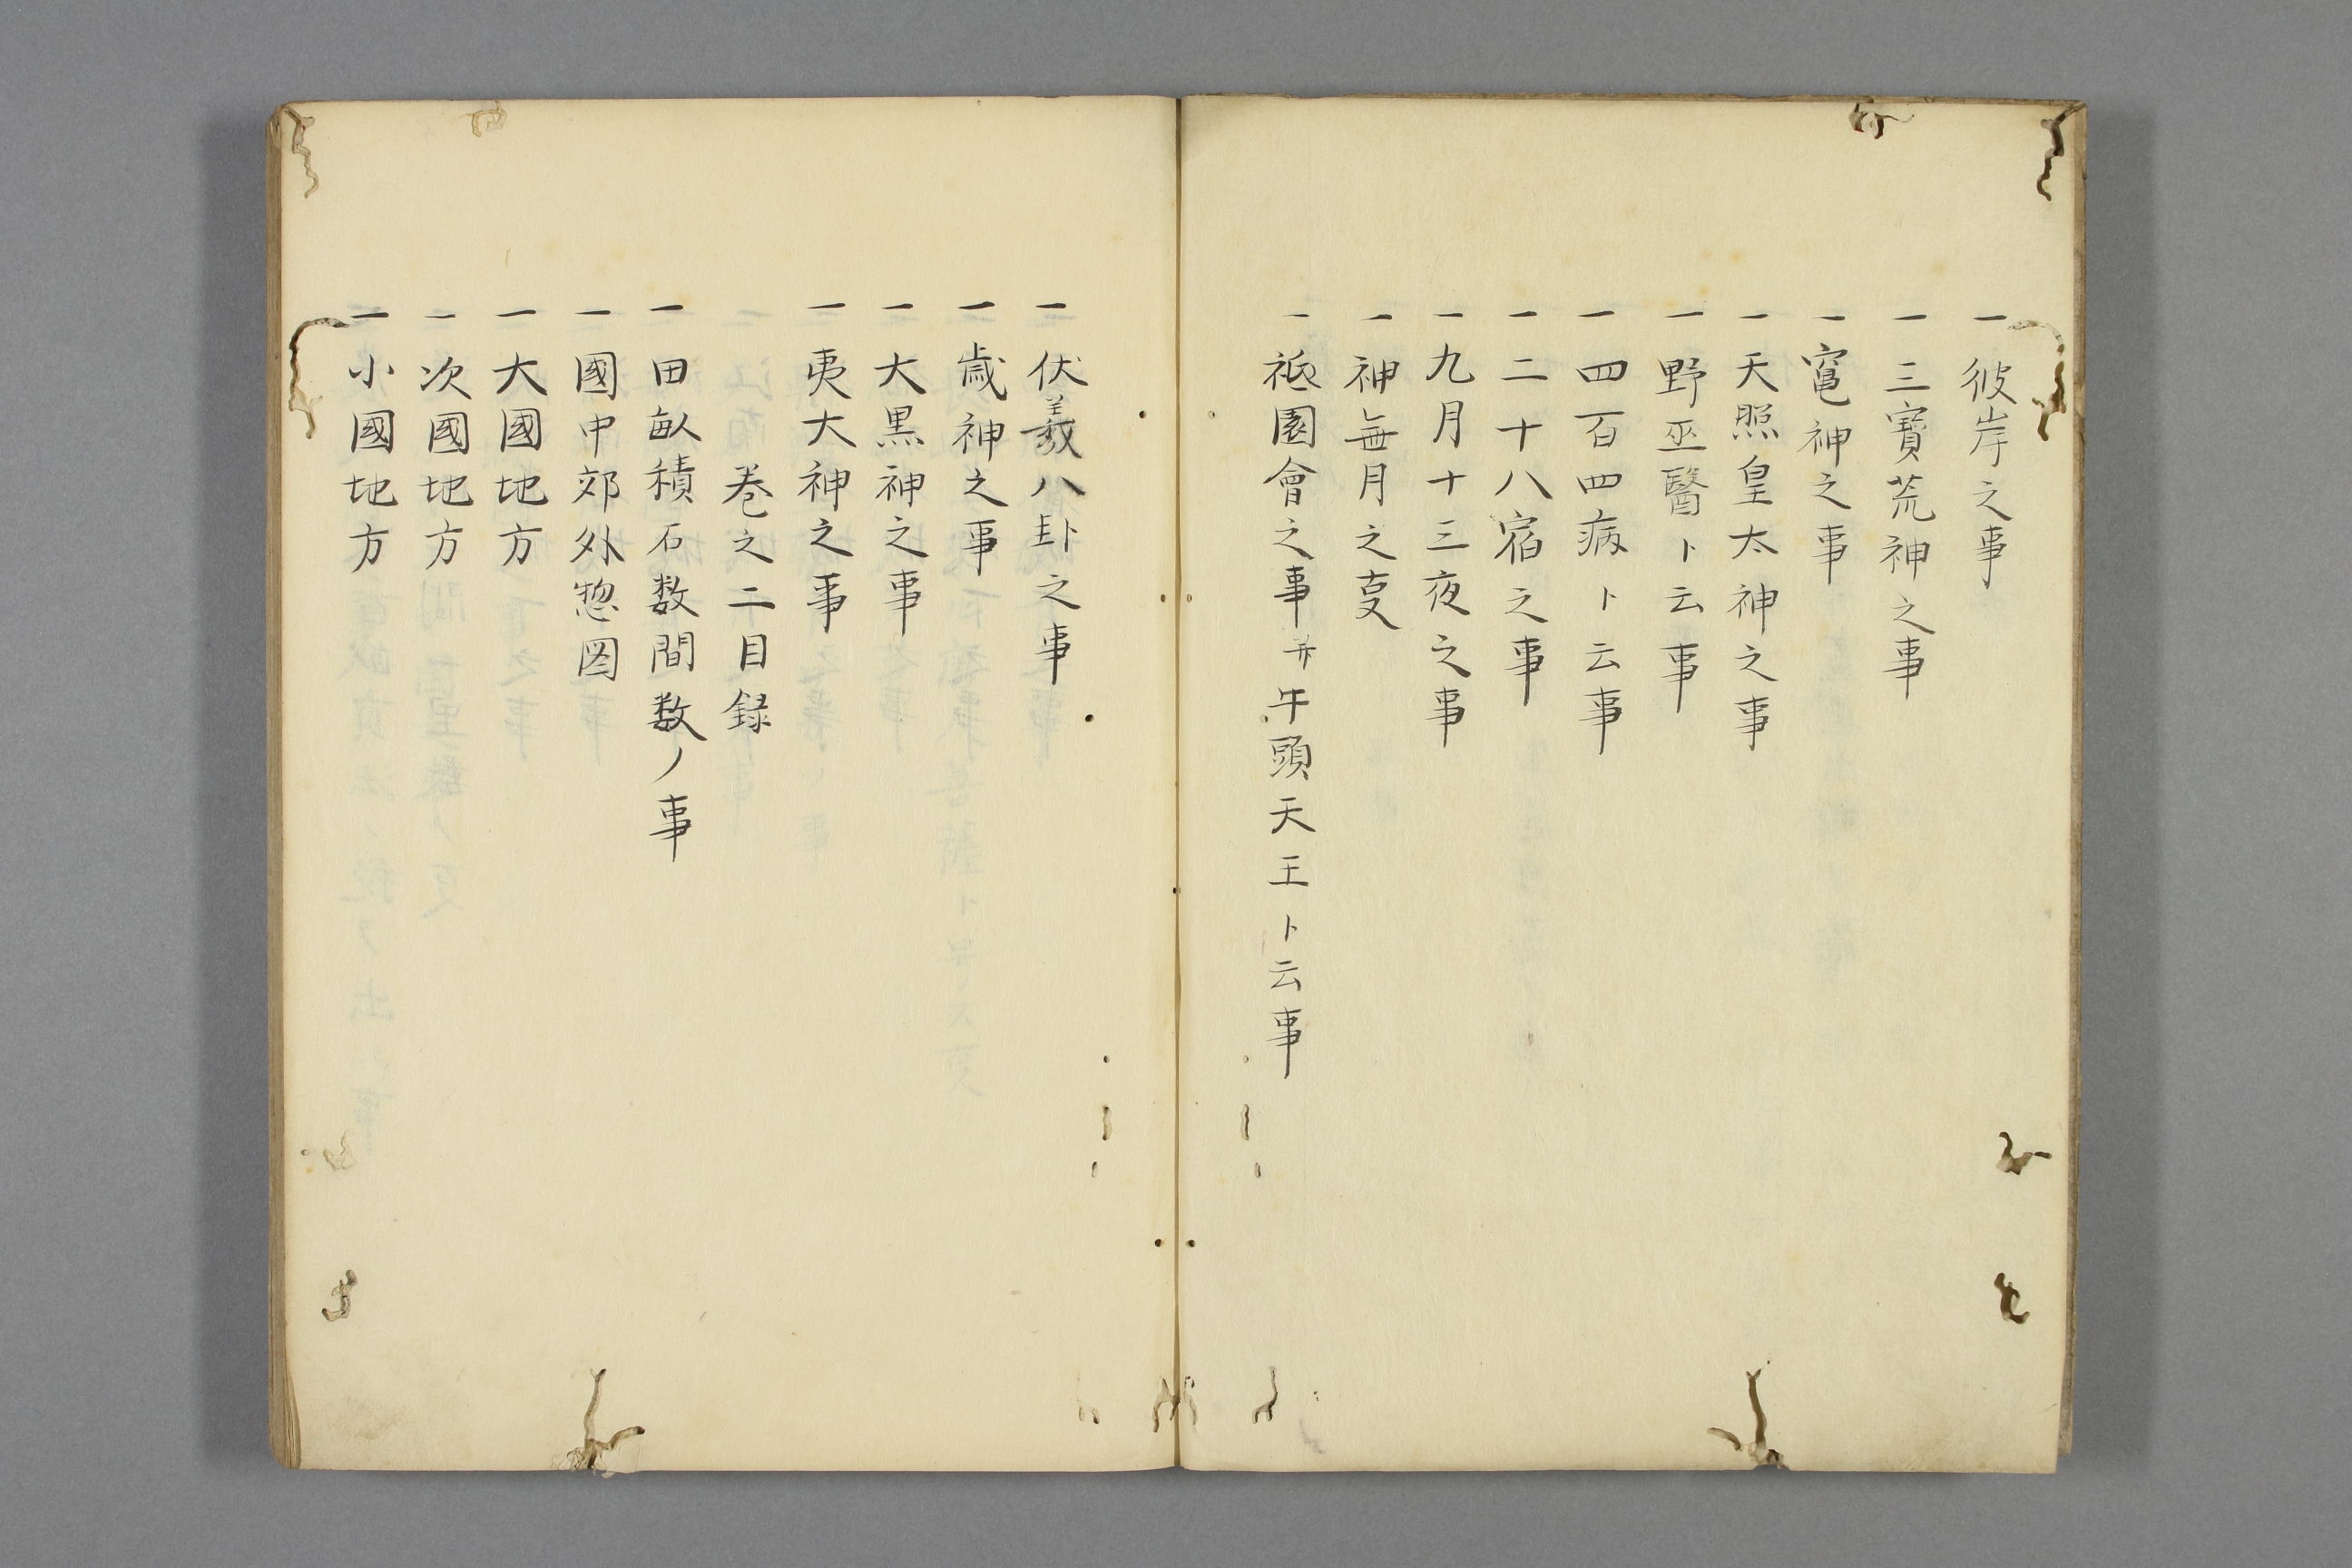 一 彼岸之事
一 三寳荒神之事
一 竃神之事
一 天照皇太神之事
一 野巫醫ト云事
一 四百四病ト云事
一 二十八宿之事
一 九月十三夜之事
一 神無月之㕝
一 祗園會之事并牛頭天王ト云事
一 伏羲八卦之事
一 歳神之事
一 大黒神之事
一 夷大神之事
巻之二目録
一 田畝積石数間数ノ事
一 國中郊外惣図
一 大國地方
一 次國地方
一 小國地方